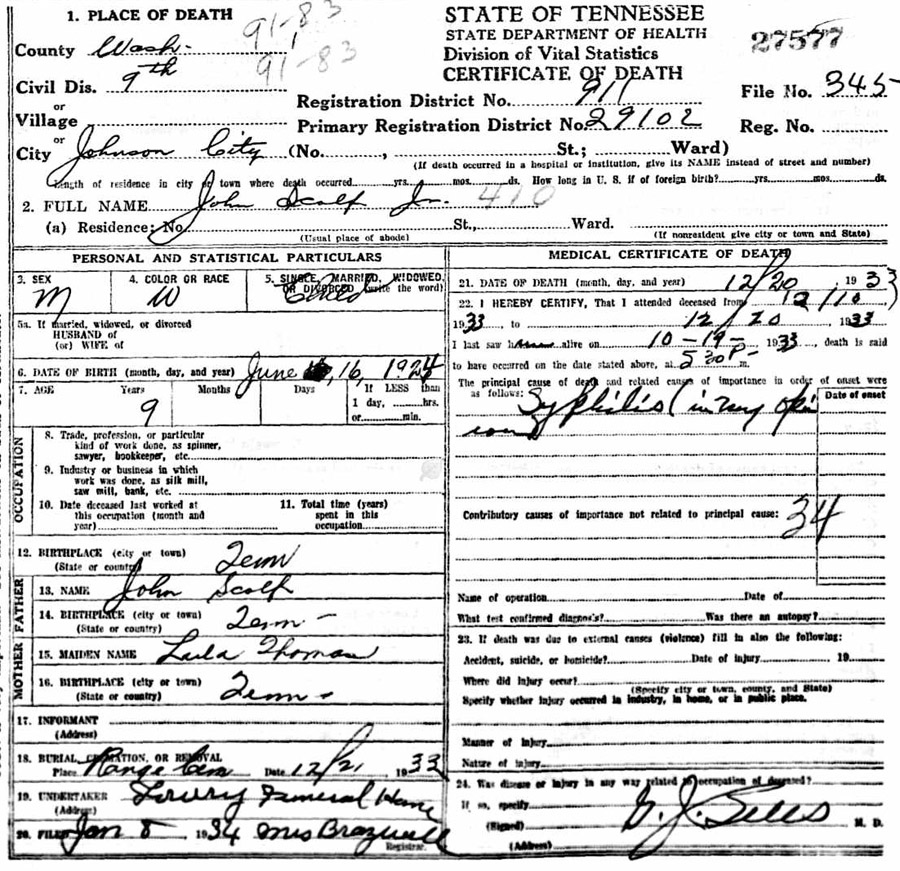 1. PLACE OF DEATH
County Wash. 91-83
91-83
Civil Dis. 9th
or
Village
or
City Johnson City (No. , St.; Ward)
STATE OF TENNESSEE
STATE DEPARTMENT OF HEALTH
Division of Vital Statistics
CERTIFICATE OF DEATH
27577
Registration District No. 911
File No. 345
Primary Registration District No. 29102
Reg. No.
(If death occurred in a hospital or institution, give its NAME instead of street and number)
Length of residence in city or town where death occurred yrs. mos. ds. How long in U. S. if of foreign birth? yrs. mos. ds.
2. FULL NAME John Scalf Jr. 410
(a) Residence: No. St., Ward.
(Usual place of abode) (If nonresident give city or town and State)
PERSONAL AND STATISTICAL PARTICULARS
3. SEX 4. COLOR OR RACE 5. SINGLE, MARRIED, WIDOWED,
OR DIVORCED (write the word)
M W Child
5a. If married, widowed, or divorced
HUSBAND of
(or) WIFE of
6. DATE OF BIRTH (month, day, and year) June 16, 1924
7. AGE Years Months Days If LESS than
1 day, hrs.
or min.
9
OCCUPATION
8. Trade, profession, or particular
kind of work done, as spinner,
sawyer, bookkeeper, etc.
9. Industry or business in which
work was done, as silk mill,
saw mill, bank, etc.
10. Date deceased last worked at
this occupation (month and
year)
11. Total time (years)
spent in this
occupation
12. BIRTHPLACE (city or town)
(State or country) Tenn
FATHER
13. NAME John Scalf
14. BIRTHPLACE (city or town)
(State or country) Tenn -
MOTHER
15. MAIDEN NAME Lula Thomas
16. BIRTHPLACE (city or town)
(State or country) Tenn -
17. INFORMANT
(Address)
18. BURIAL, CREMATION, OR REMOVAL
Place Range Cem Date 12/21 1933
19. UNDERTAKER Lowry Funeral Home
(Address)
20. FILED Jan 8 1934 Mrs
Registrar.
MEDICAL CERTIFICATE OF DEATH
21. DATE OF DEATH (month, day, and year) 12/20, 1933
22. I HEREBY CERTIFY, That I attended deceased from 12/10
1933 to 12/20 1933
I last saw h alive on 10-19- 1933, death is said
to have occurred on the date stated above, at 5 30 P. m.
The principal cause of death and related causes of importance in order of onset were
as follows: Date of onset
Syphilis (in my opin
ion)
Contributory causes of importance not related to principal cause: 34
Name of operation Date of
What test confirmed diagnosis? Was there an autopsy?
23. If death was due to external causes (violence) fill in also the following:
Accident, suicide, or homicide? Date of injury 19
Where did injury occur?
(Specify city or town, county, and State)
Specify whether injury occurred in industry, in home, or in public place.
Manner of injury
Nature of injury
24. Was disease or injury in any way related to occupation of deceased?
If so, specify
(Signed) M. D.
(Address)